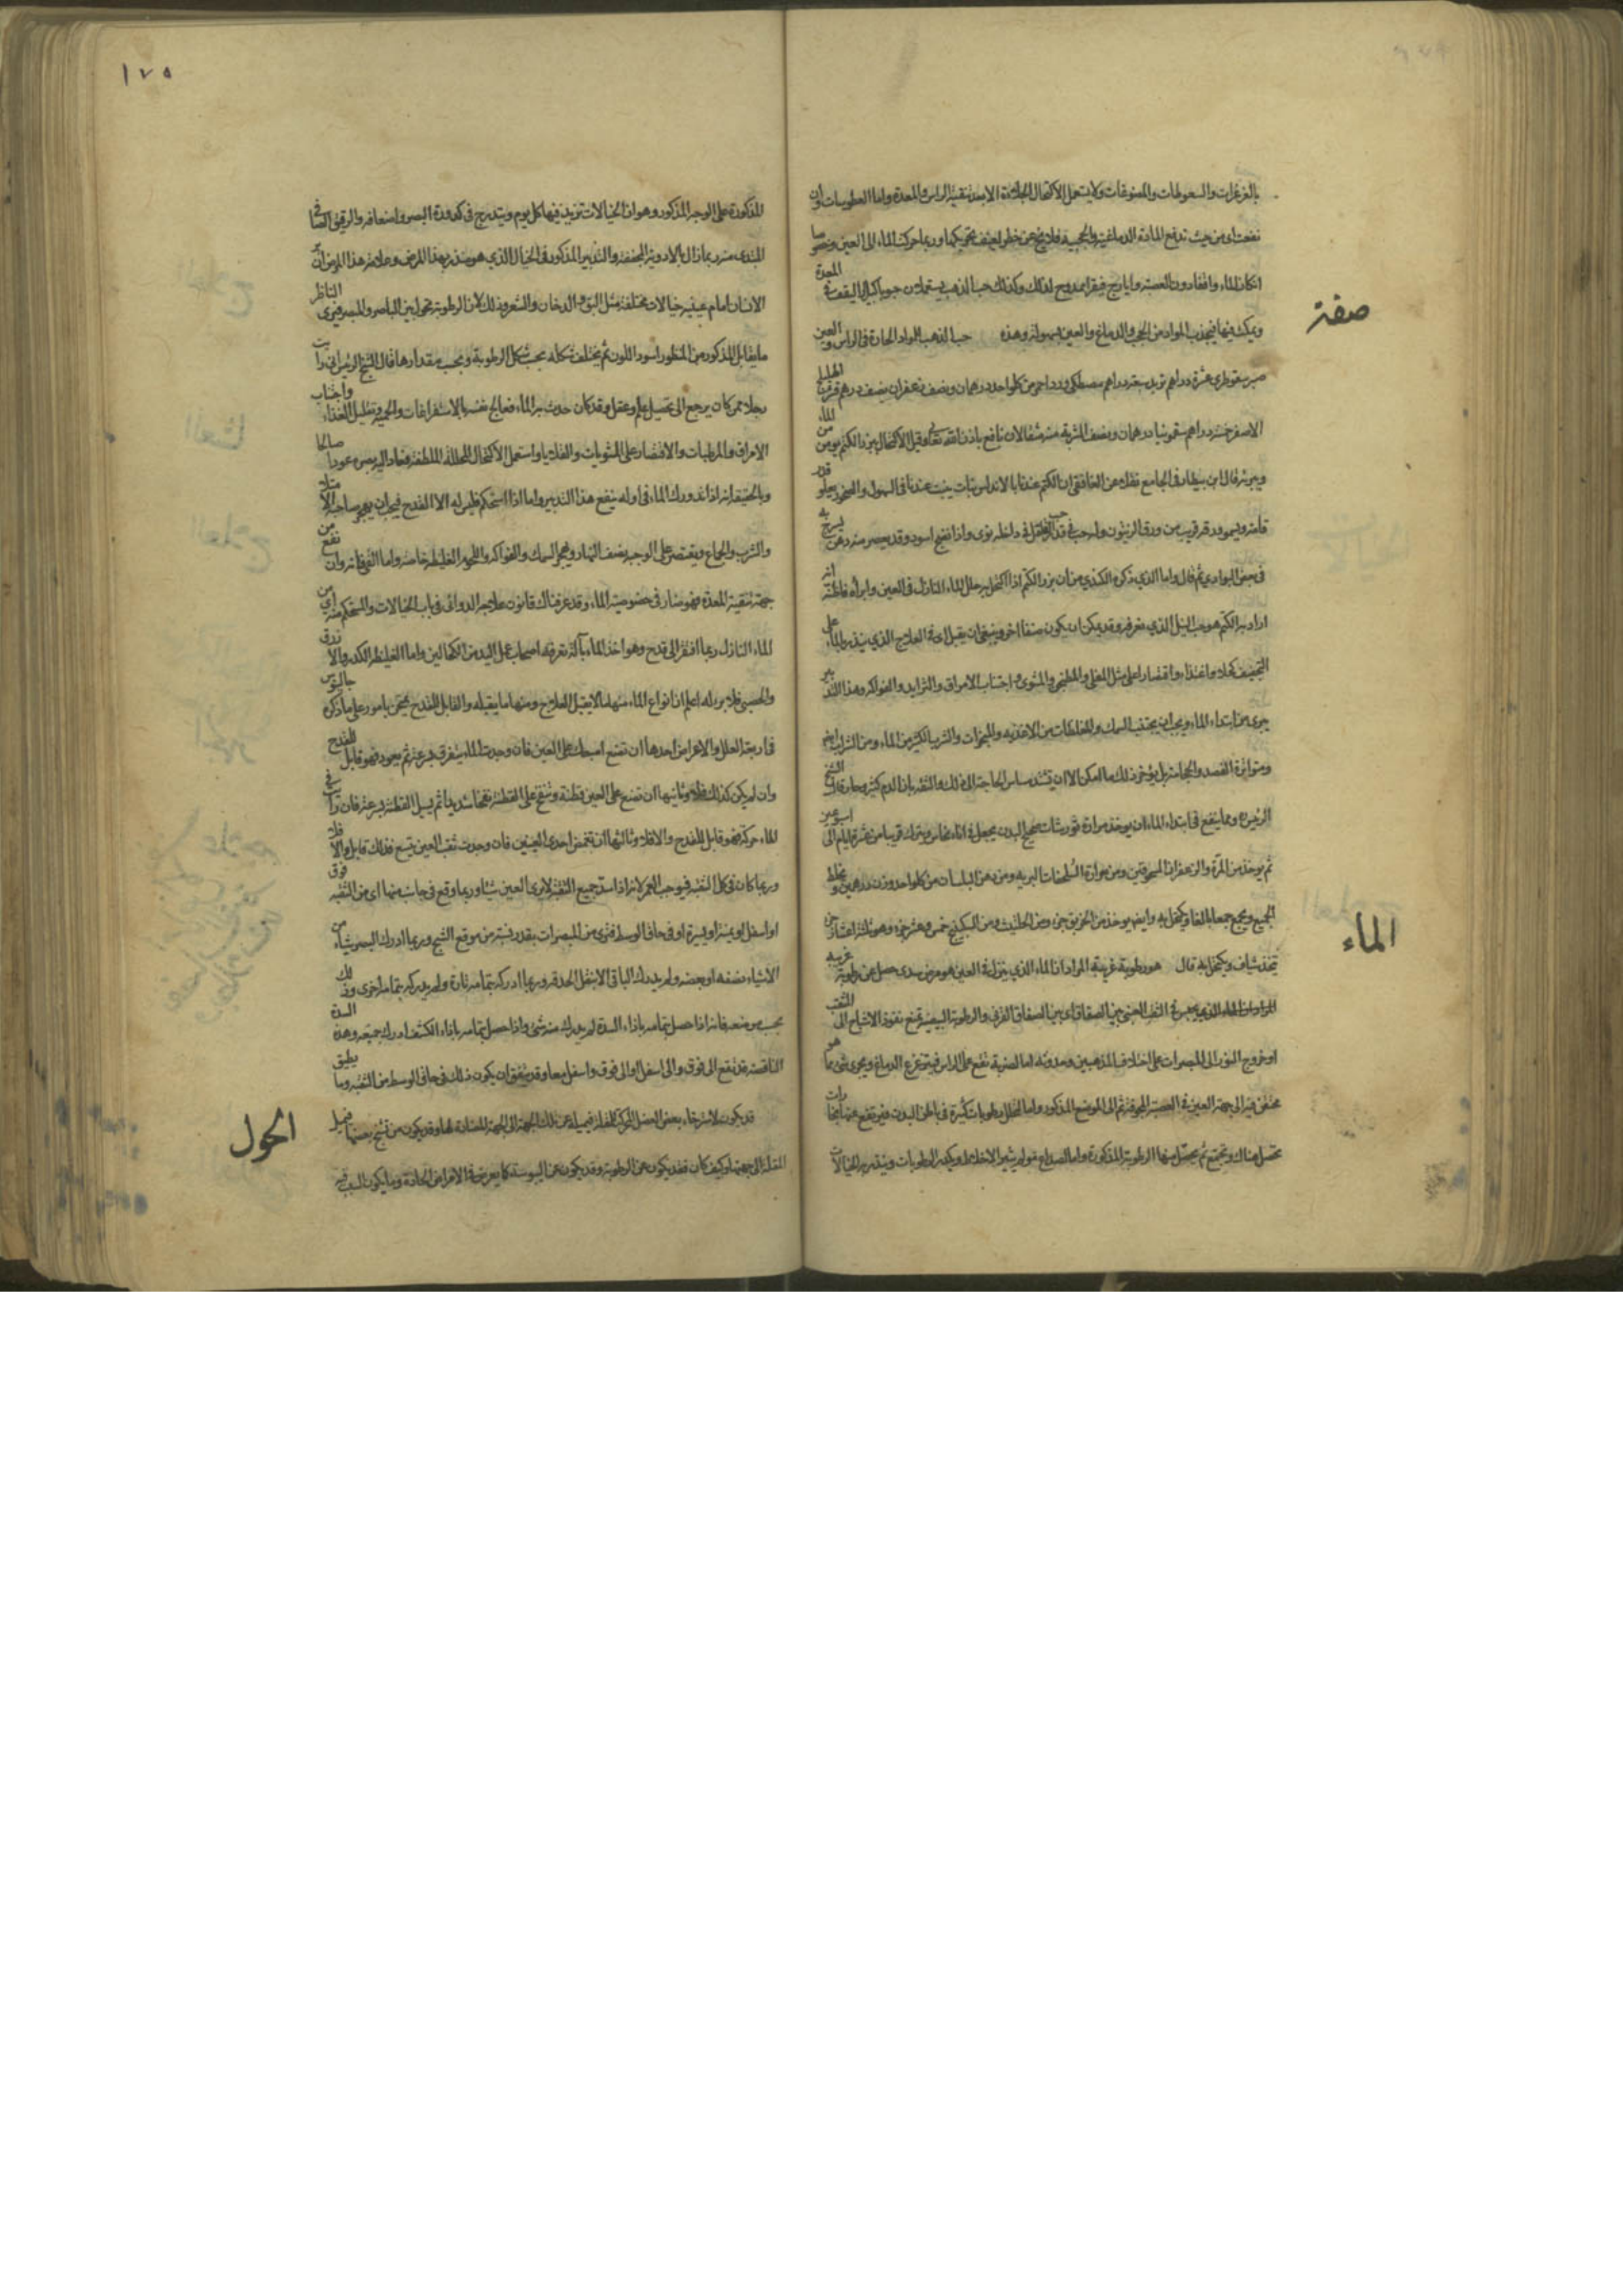 بالغرغرات والسعوطات ولا يستعمل الاكتحال الا بعد تنقية الراس والمعدة واما العطوسات وان
نفعت من حيث تدفع المادة الدماغية فلا تخ عن خطر لعنف تحريكها وربما حركت الماء الى العين وخصوصا
ان كان الماء واقفا دون العصبة وايارج فيقرا ممدوح لذلك وكذلك حب الذهب يستعملان حبوبا كبارا ليقف في المعدة
ويمكث فيها فيجذب المواد من الدماغ والعين بسهولة وهذه حب الذهب للمواد الحارة في الراس والعين
صفة
صبر سقوطرى عشرة دراهم تربد سبعة دراهم مصطكى وورد احمر من كل واحد درهمان ونصف زعفران نصف درهم اهليلج
الاصفر خمسة دراهم سقمونيا درهمان ونصف الشربة منه مثقالان نافع باذن الله تعالى وقيل الاكتحال ببزر الكتم يؤمن من الماء
ويبرئه قال ابن بيطار في الجامع نقلا عن الغافقي ان الكتم عندنا بالاندلس نبات ينبت عندنا في السهول ويعلو قدر
قامة وورقه قريب من ورق الزيتون وله حب في قدر الفلفل في داخله نوى واذا نضج اسود وقد يعصر منه دهن يسرج به
في بعض البوادي ثم قال واما الذي ذكره الكندي من ان بزر الكتم اذا اكتحل به حلل الماء النازل في العين وابراه فاظن انه
اراد به الكتم هو حب النيل الذي نعرفه وقد يمكن ان يكون صنفا اخر وينبغي ان يقبل في العلاج الذي ينذر بالماء على
التجفيف كحلا وغذاء واقتصارا على مثل المقلى والمطجن والمشوى واجتناب الامراق والثرايد والفواكه وهذا التدبير
يبرى من ابتداء الماء ويجب ان يجتنب السمك والمغلظات من الاغذيه والمبخرات والشرب الكثير من الماء ومن الشراب ايضا
ومتواترة الفصد والحجامة بل يؤخر ذلك ما امكن الا ان يشتد مساس الحاجة الى ذلك والثقة بان الدم كثير وحار قال الشيخ
الرئيس ومما ينفع في ابتداء الماء ان يوخذ مرارة ثور شاب صحيح البدن يجعل في اناء نحاس ويترك قريبا من عشرة ايام الى اسبوعين
ثم يوخذ من المر والزعفران المسحوقين ومن مرارة السلحفاة البرية ومن دهن البلسان من كل واحد وزن درهمين ويخلط
الجميع ويجمع جمعا بالغا ويكتحل به وايضا يوخذ من الخربق جزء ومن الحلتيت ومن السكبينج خمس وعشر جزء وهو ثلثة اعشار جزء
يتخذ شياف ويكتحل به قال هو رطوبة غريبة المراد ان الماء الذي ينزل في العين هو مرض سدى حصل عن رطوبة غريبة
الماء
بين الصفاق القرني والرطوبة البيضية تمنع نفوذ الاشباح الى
او خروج النور الى المبصرات على اختلاف المذهبين وحدوثه اما لضربة تقع على الراس فيتزعزع الدماغ ويجرى شئ مما هو
محتقن فيه الى جهة العين في العصبة المجوفة ثم الى الموضع المذكور واما لتخلل رطوبات كثيرة في باطن البدن فيرتفع عنها بخارات
تحصل هناك وتجتمع ثم يحصل منها الرطوبة المذكورة واما لصداع مولم يثير الاخلاط ويكدر الرطوبات وينذر به الخيالات
١٧٥
المذكورة على الوجه المذكور وهو ان الخيالات تزيد فيها كل يوم ويتدرج في كدورة البصر واضعافه والرقيق الصافي
المبتدى منه ربما زال بالادوية المجففة والتدبير المذكور في الخيال الذي هو منذر بهذا المرض وعلامة هذا المرض ان يرى
الانسان امام عينيه خيالات مختلفة مثل البق والدخان والشعر وذلك لان الرطوبة تحول بين الباصر والمبصر فيرى الناظر
ما يقابل المذكور من المنظور اسود اللون ثم يختلف شكله بحسب شكل الرطوبة وبحسب مقدارها قال الشيخ الرئيس اني رايت
رجلا ممن كان يرجع الى تحصيل علم وعقل وقد كان حدث به الماء فعالج نفسه بالاستفراغات والحمية وتقليل الغذاء واجتناب
الامراق والمرطبات والاقتصار على المشويات والقلايا واستعمل الاكحال المحللة الملطفة فعاد اليه بصره عودا صالحا
وبالحقيقة انه اذا تدورك الماء في اوله ينفع هذا التدبير واما اذا استحكم فليس له الا القدح فيجب ان يهجر صاحبه الامتلاء
والشرب والجماع ويقتصر على الوجبة نصف النهار ويهجر السمك والفواكه واللحوم الغليظة خاصة واما القئ فانه وان نفع من
جهة تنقية المعدة فهو ضار في خصوصية الماء وقد عرفناك قانون علاجه الدوائى في باب الخيالات والمستحكم منه اى من
الماء النازل ربما افتقر الى قدح وهو اخذ الماء بآلة تعرفه اصحاب عمل اليد من الكحالين واما الغليظ الكدر والازرق
والجصى فلا برء له اعلم ان انواع الماء منها ما لا يقبل العلاج ومنها ما يقبله والقابل للقدح يمتحن بامور على ما ذكره جالينوس
في اربعة العلل والاعراض احدها ان تضع اصبعك على العين فان وجدت الماء يتفرق بسرعة ثم يعود فهو قابل للقدح
وان لم يكن كذلك فلا وثانيها ان تضع على العين قطنة وتنفخ على القطنة نفخا شديدا ثم يسيل القطنة بسرعة فان رايت في
الماء حركة فهو قابل للقدح والا فلا وثالثها ان تغمض احدى العينين فان وجدت ثقب العين يتسع فذلك قابل والا فلا
وربما كان في كل الثقبة فيوجب العمى لانه اذا انسد جميع الثقبة لا يرى العين شيئا وربما وقع في جانب منها اى من الثقبة فوق
او اسفل او يمنة او يسرة او في حاق الوسط فترى من المبصرات بقدر نسبته من موقع الشبح وربما ادرك البصر شيئا من
الاشياء نصفه او بعضه ولم يدرك الباقي الا بنقل الحدقه وربما ادركه بتمامه تارة ولم يدركه بتمامه اخرى وذلك
بحسب موضعه فانه اذا حصل بتمامه بازاء السدة لم يدرك منه شئ واذا حصل بتمامه بازاء الكشف ادرك جميعه وهذه السدة
الناقصة قد تقع الى فوق والى اسفل او الى فوق واسفل معا وقد يتفق ان يكون ذلك في حاق الوسط من الثقبة وما يطيق
قد يكون لاسترخاء بعض العضل المحركة للمقلة فيميل عن تلك الجهة الى الجهة المضادة لها وقد يكون من تشنج بعضها فيميل
الحول
المقلة الى جهتها وكيف كان فقد يكون عن الرطوبة وقد يكون عن اليبوسة كما يعرض في الامراض الحادة وما يكون السبب فيه